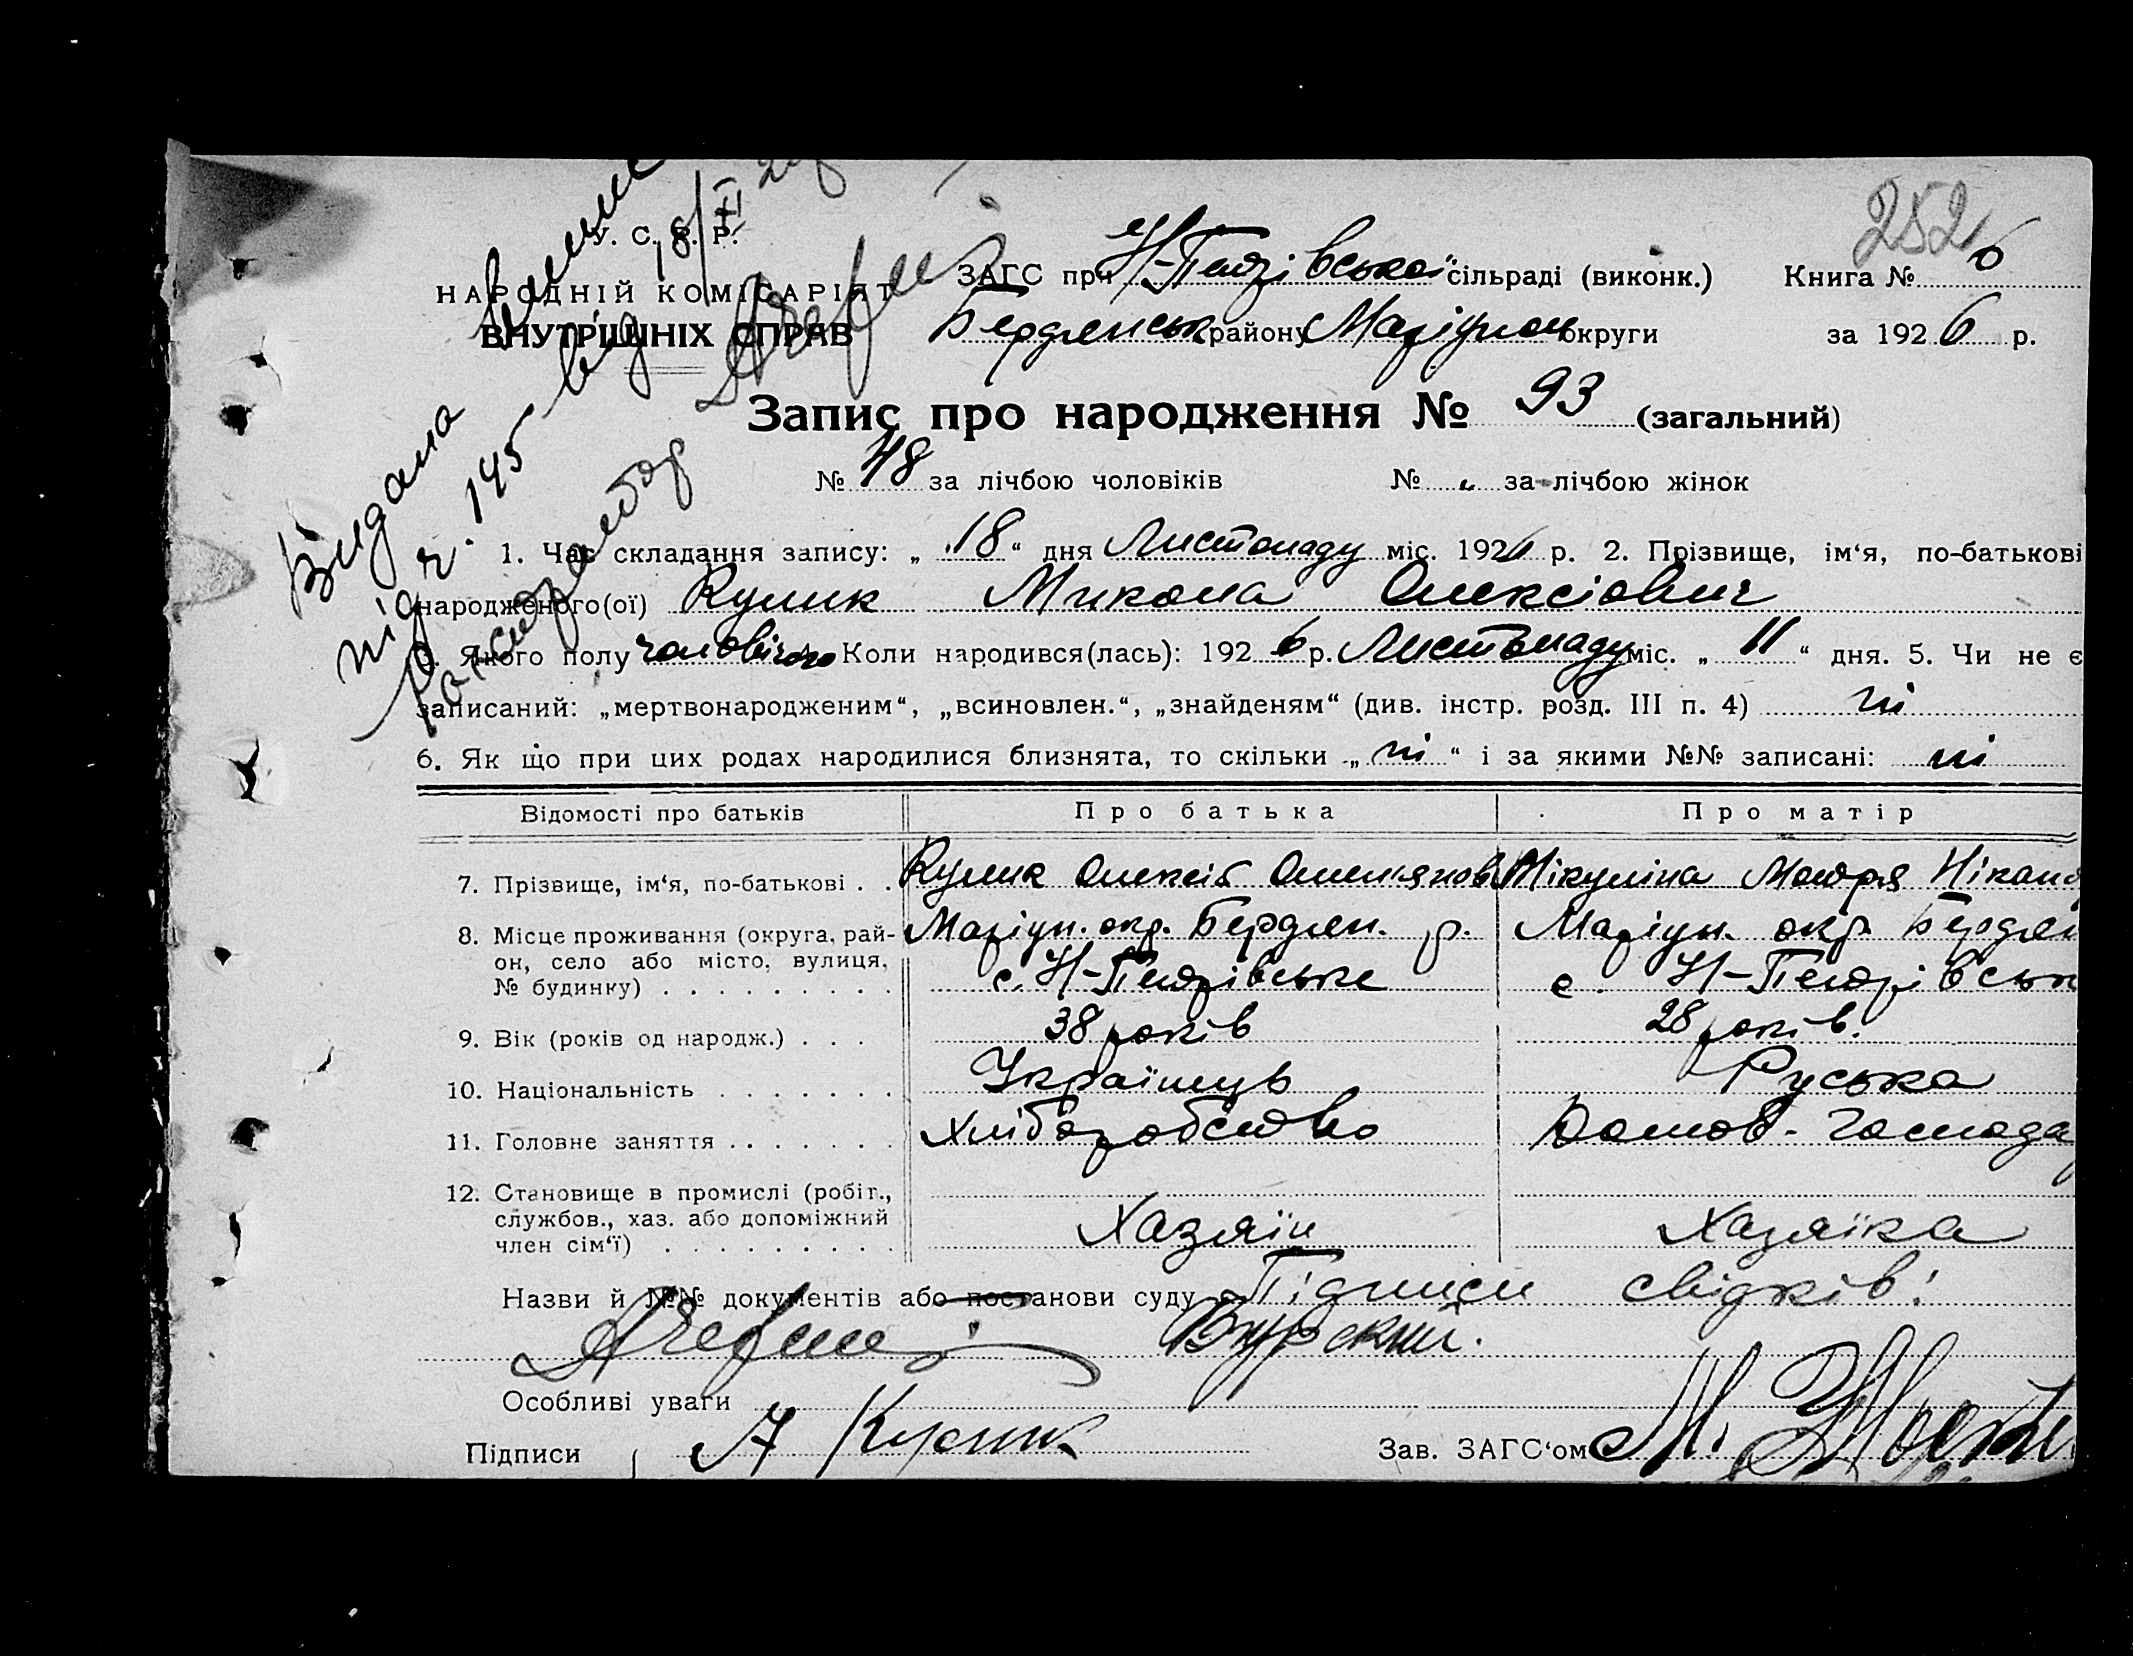 252
У. С. Р. Р.
НАРОДНІЙ КОМІСАРІЯТ
ВНУТРІШНІХ СПРАВ
ЗАГС при Н-Петрівської сільраді (виконк.) Книга № 6
Бердянськ району Маріупол округи за 1926 р.
Видана
під ч. 145 від 18/XI 26 р
Реєстратор
Запис про народження № 93 (загальний)
№ 48 за лічбою чоловіків № „ за лічбою жінок
1. Час складання запису: „18“ дня Листопаду міс. 1926 р. 2. Прізвище, ім‘я, по-батькові
народженого(ої) Кулик Микола Олексіович
Якого полу чоловічого Коли народився(лась): 1926 р. Листопаду міс. „11“ дня. 5. Чи не є
записаний: „мертвонародженим“, „всиновлен.“, „знайденям“ (див. інстр. розд. III п. 4) ні
6. Як що при цих родах народилися близнята, то скільки „ні“ і за якими №№ записані: ні
Відомості про батьків Про батька Про матір
7. Прізвище, ім‘я, по-батькові . . Кулик Олексій Омелянов Мікуліна Мотря Нікан
8. Місце проживання (округа, рай- Маріуп. окр. Бердян. р. Маріуп. окр. Бердян
он, село або місто, вулиця, с. Н-Петрівське с. Н-Петрівськ
№ будинку) . . . . . . . . .
9. Вік (років од народж.) . . . 38 років 28 років.
10. Національність . . . . . . . Українець Руська
11. Головне заняття . . . . . . . Хліборобство Домов-господа
12. Становище в промислі (робіт.,
службов., хаз. або допоміжний Хазяїн Хазяїка
член сім‘ї) . . . . . . . . .
Назви й №№ документів або постанови суду Підписи свідків:
Бурский.
Особливі уваги
Підписи А Кулик Зав. ЗАГС‘ом М.